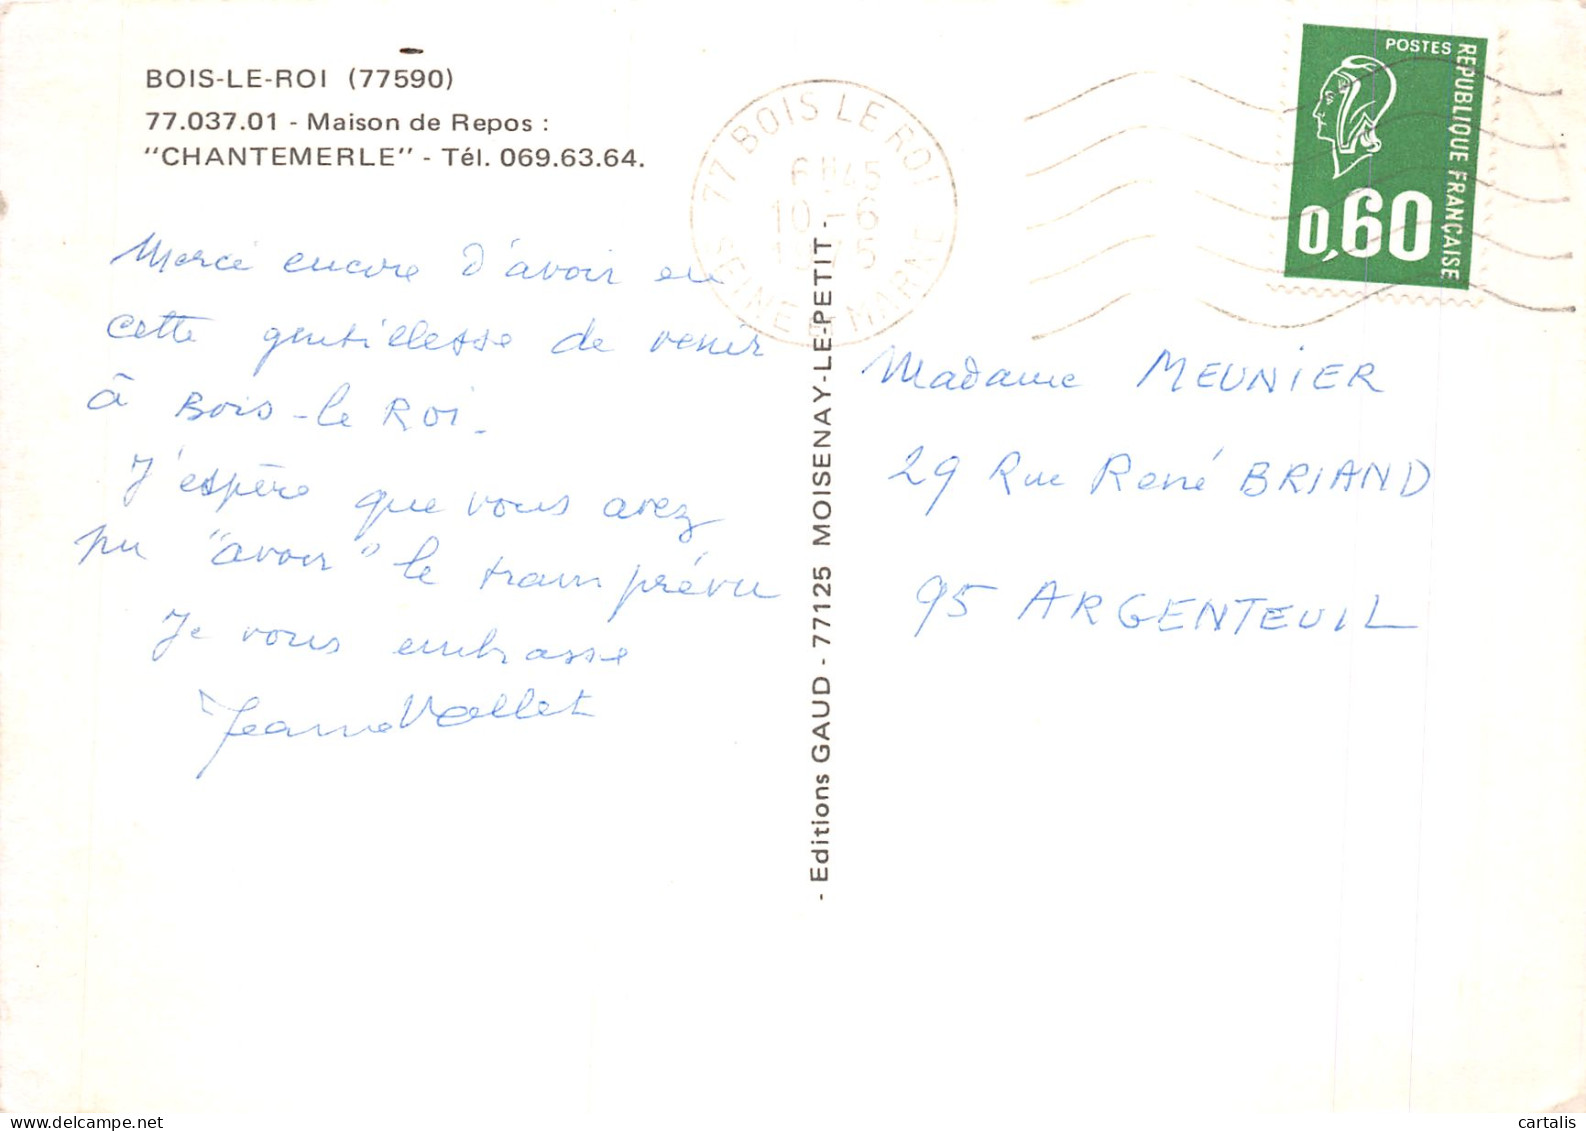 BOIS-LE-ROI (77590)
77.037.01 - Maison de Repos :
"CHANTEMERLE" - Tél. 069.63.64.
Merci encore d'avoir eu
cette gentillesse de venir
à Bois-le Roi.
J'espère que vous avez
pu "avoir" le train prévu
Je vous embrasse
Jeanne Vallet
- Editions GAUD - 77125 MOISENAY-LE-PETIT -
77 BOIS LE ROI
SEINE ET MARNE
6H45
10-6
POSTES
REPUBLIQUE FRANÇAISE
0,60
Madame MEUNIER
29 Rue René BRIAND
95 ARGENTEUIL
delcampe.net
cartalis